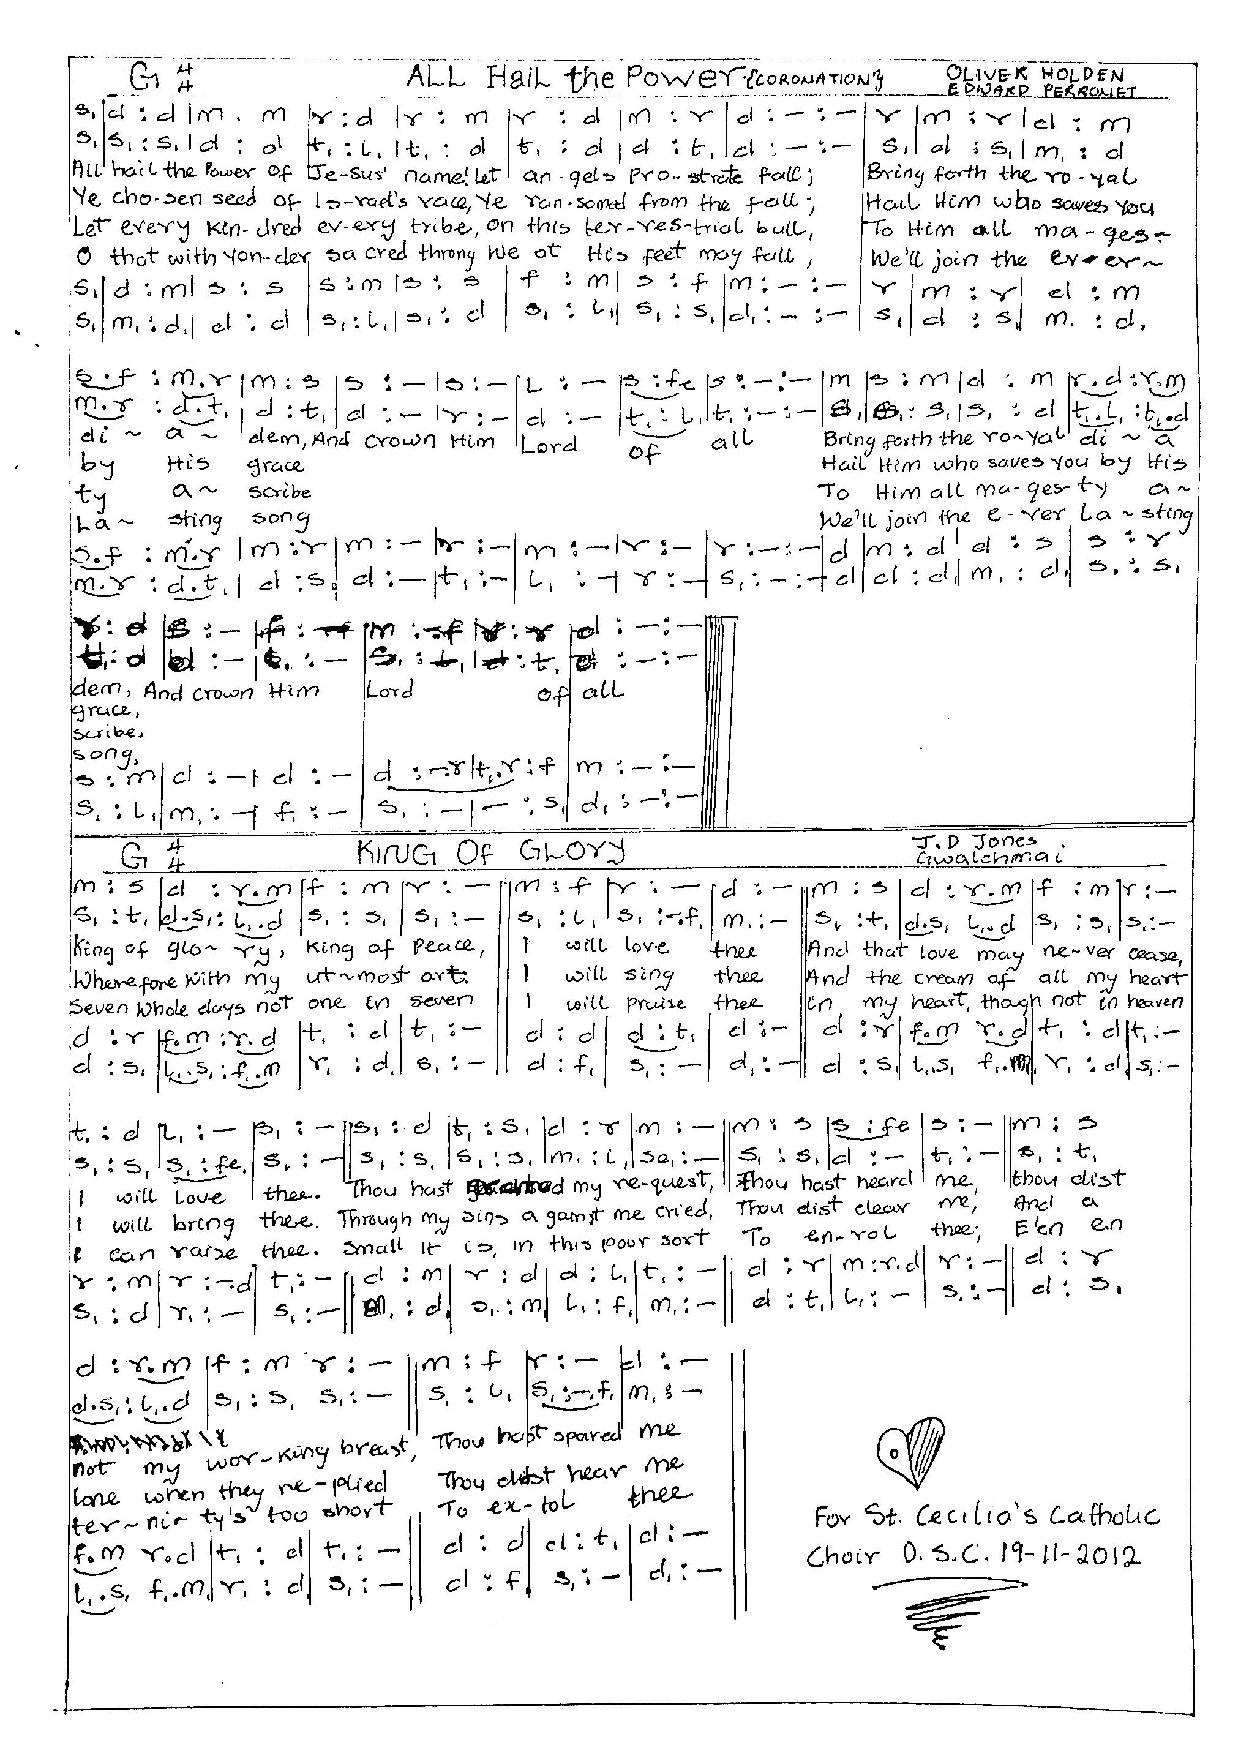 G 4/4 ALL Hail the Power {CORONATION} OLIVER HOLDEN
EDWARD PERRONET
s, | d : d | m . m | r : d | r : m | r : d | m : r | d : — : — | r | m : r | d : m
s, | s, : s, | d : d | t, : l, | t, : d | t, : d | d : t, | d : — : — | s, | d : s, | m, : d
All hail the Power OF Je-sus' name! Let an-gels pro-strate fall; Bring forth the ro-yal
Ye cho-sen seed of Is-rael's race, Ye ran-somed from the fall; Hail Him who saves you
Let every kin-dred ev-ery tribe, on this ter-res-trial ball, To Him all ma-ges-
O that with yon-der sa cred throng We at His feet may fall, We'll join the ev-er~
s, | d : m | s : s | s : m | s : s | f : m | s : f | m : — : — | r | m : r | d : m
s, | m, : d, | d : d | s, : l, | s, : d | s, : l, | s, : s, | d, : — : — | s, | d : s, | m. : d,
s.f : m.r | m : s | s : — | s : — | L : — | s : fe | s : — : — | m | s : m | d : m | r.d : r.m
m.r : d.t, | d : t, | d : — | r : — | d : — | t, : l, | t, : — : — | s, | s, : s, | s, : d | t,.l, : t,.d
di ~ a ~ dem, And crown Him Lord of all Bring forth the ro~yal di ~ a
by His grace Hail Him who saves you by His
ty a~ scribe To Him all ma-ges-ty a~
La~ sting song We'll join the e-ver La~sting
s.f : m.r | m : r | m : — | r : — | m : — | r : — | r : — : — | d | m : d | d : s | s : r
m.r : d.t, | d : s, | d : — | t, : — | l, : — | r : — | s, : — : — | d | d : d, | m, : d, | s, : s,
r : d | s : — | f : — | m : —.f | r : r | d : — : —
t, : d | d : — | l, : — | s, : t, | d : t, | d : — : —
dem, And crown Him Lord of all
grace,
scribe,
song,
s : m | d : — | d : — | d : —.r | t,.r : f | m : — : —
s, : l, | m, : — | f, : — | s, : — | — : s, | d, : — : —
G 4/4 KING OF GLORY J.D JONES
Gwalchmai
m : s | d : r.m | f : m | r : — || m : f | r : — | d : — || m : s | d : r.m | f : m | r : —
s, : t, | d.s, : l,.d | s, : s, | s, : — | s, : l, | s, : —.f, | m, : — | s, : t, | d.s, l,.d | s, : s, | s, : —
King of glo~ ry, King of Peace, I will love thee And that love may ne~ver cease,
Wherefore with my ut~most art: I will sing thee And the cream of all my heart
Seven whole days not one in seven I will praise thee In my heart, though not in heaven
d : r | f.m : r.d | t, : d | t, : — || d : d | d : t, | d : — || d : r | f.m r.d | t, : d | t, : —
d : s, | l,.s, : f,.m | r, : d, | s, : — | d : f, | s, : — | d, : — | d : s, | l,.s, f,.m, | r, : d, | s, : —
t, : d | l, : — | s, : — || s, : d | t, : s, | d : r | m : — || m : s | s : fe | s : — || m : s
s, : s, | s, : fe, | s, : — || s, : s, | s, : s, | m, : l, | se, : — || s, : s, | d : — | t, : — || s, : t,
I will love thee. Thou hast my re-quest, Thou hast heard me, thou dist
I will bring thee. Through my sins a gainst me cried, Thou dist clear me, And a
I can raise thee. Small it is, in this pour sort To en-rol thee; E'en en
r : m | r : —.d | t, : — || d : m | r : d | d : l, | t, : — || d : r | m : r.d | r : — || d : r
s, : d | r, : — | s, : — || m, : d, | s, : m, | l, : f, | m, : — || d : t, | l, : — | s, : — || d : s,
d : r.m | f : m r : — || m : f | r : — | d : — ||
d.s, : l,.d | s, : s, s, : — || s, : l, | s, : —.f, | m, : —
not my wor-king breast, Thou hast spared me
lone when they re-plied Thou didst hear me
ter~nir~ty's too short To ex-tol thee
f.m r.d | t, : d | t, : — || d : d | d : t, | d : —
l,.s, f,.m, | r, : d, | s, : — || d : f, | s, : — | d, : —
For St. Cecilia's Catholic
Choir D.S.C. 19-11-2012